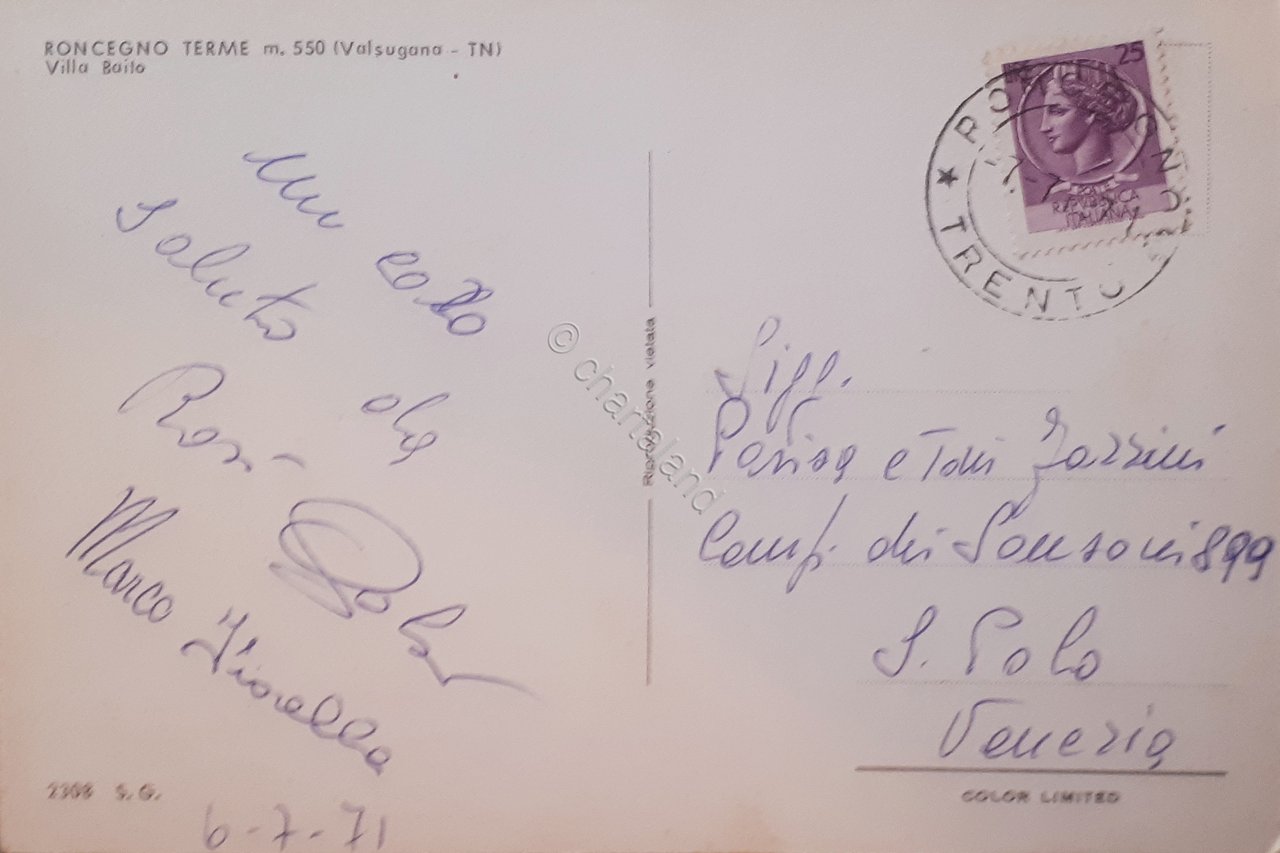 RONCEGNO TERME m. 550 (Valsugana - TN)
Villa Baito
Un caro
Saluto da
Rosi Paola
Marco Fiorella
6-7-71
2308 S. G.
Riproduzione vietata
© chartaland
25
POSTE
REPVBBLICA
ITALIANA
TRENTO
Sigg.
e Toni Zazzini
Camp. dei Sansoni 899
S. Polo
Venezia
COLOR LIMITED